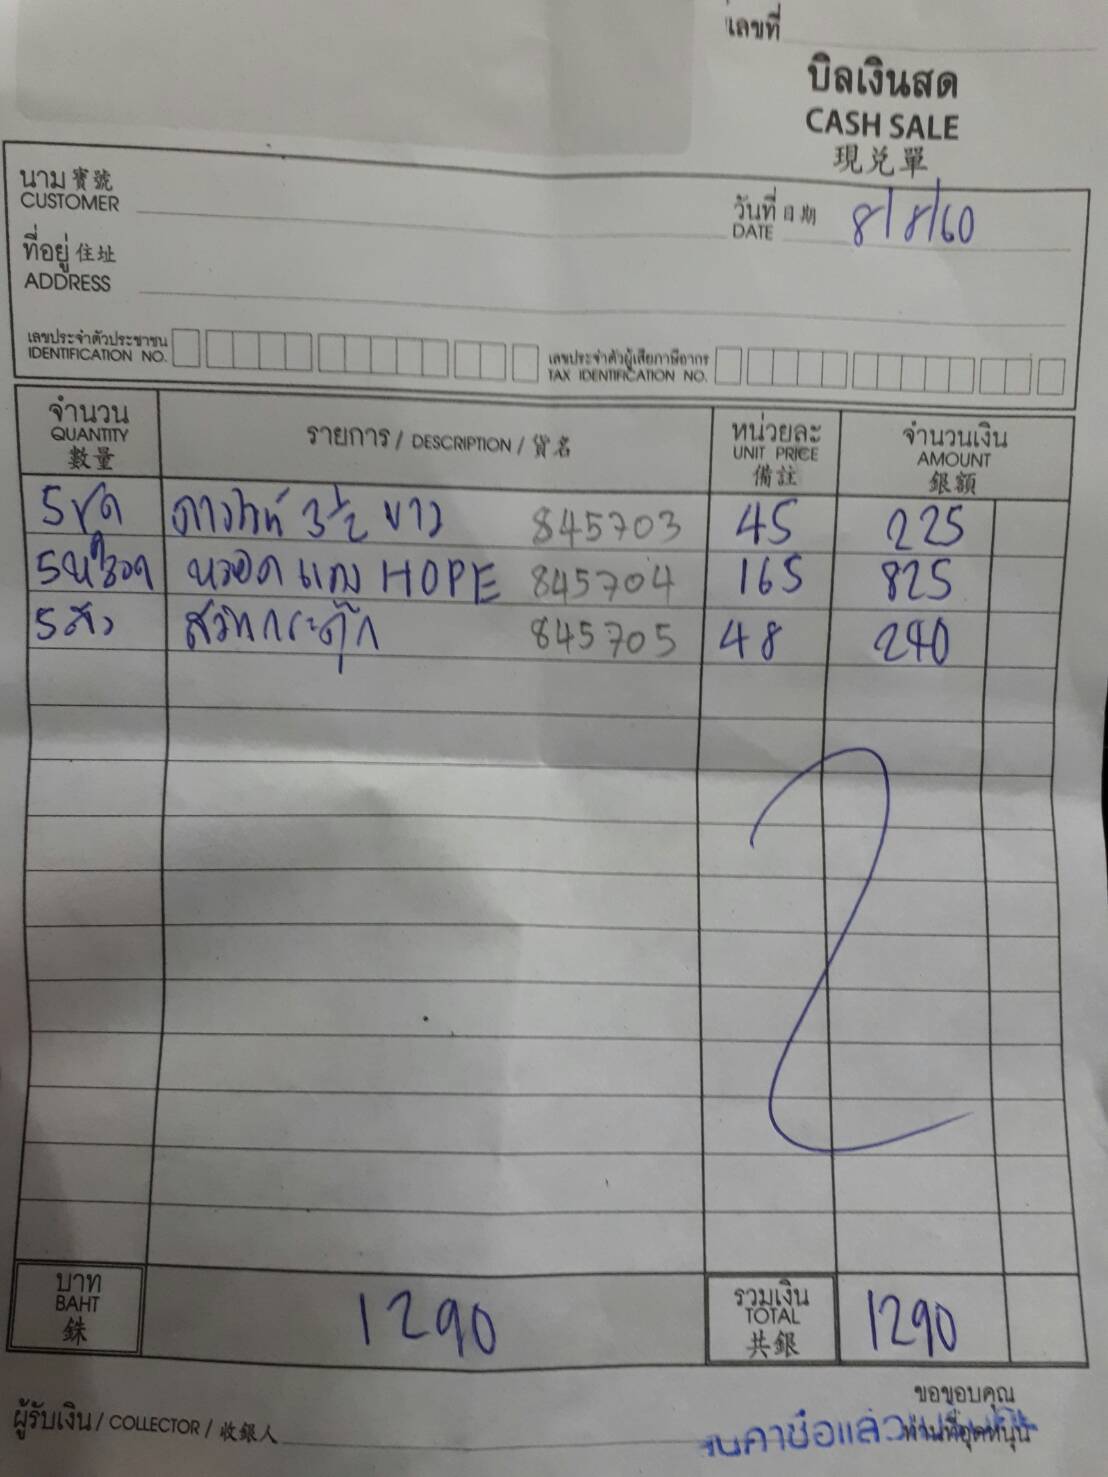 เลขที่
บิลเงินสด
CASH SALE
現兌單
นาม 寶號
CUSTOMER
วันที่ 日期
DATE
8/8/60
ที่อยู่ 住址
ADDRESS
เลขประจำตัวประชาชน
IDENTIFICATION NO.
เลขประจำตัวผู้เสียภาษีอากร
TAX IDENTIFICATION NO.
จำนวน
QUANTITY
數量
รายการ / DESCRIPTION / 貨名
หน่วยละ
UNIT PRICE
備註
จำนวนเงิน
AMOUNT
銀額
5 ชุด ดาวไลท์ 3 1/2 ขาว 845703 45 225
5 หลอด หลอด HOPE 845704 165 825
5 สวิทกระตุ๊ก 845705 48 240
บาท
BAHT
銖
1290
รวมเงิน
TOTAL
共銀
1290
ผู้รับเงิน / COLLECTOR / 收銀人
ขอขอบคุณ
ท่านที่อุดหนุน